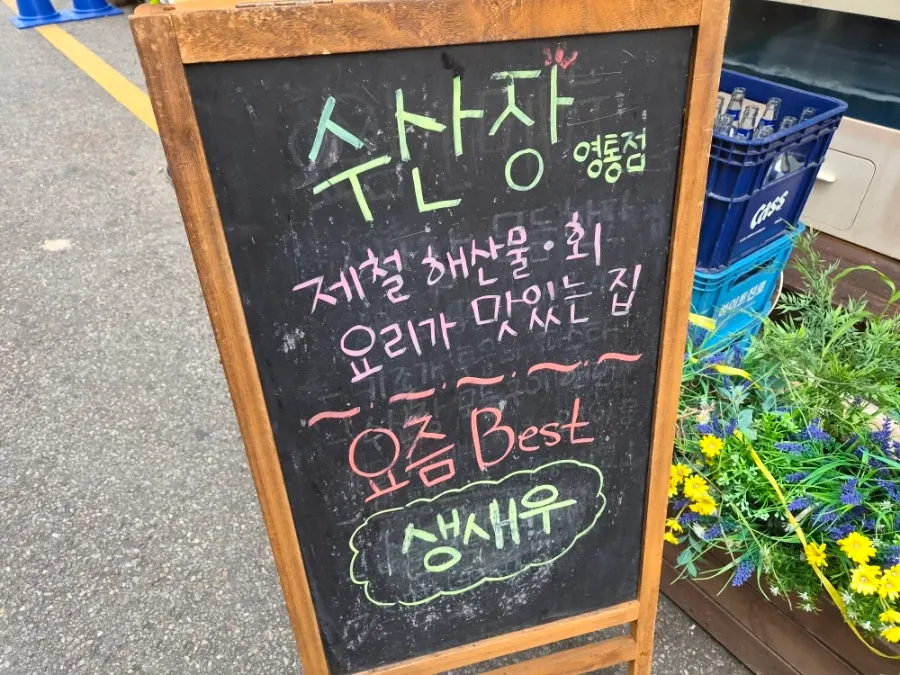 수산장 영통점
제철 해산물·회
요리가 맛있는 집
요즘 Best
생새우
CASS
하이트진로